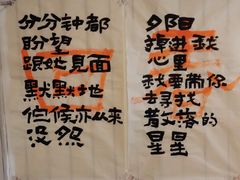 分分钟都
盼望
跟她見面
默默地
伫候亦从来
没怨
夕阳
掉进我
心里
我要带你
去寻找
散落的
星星